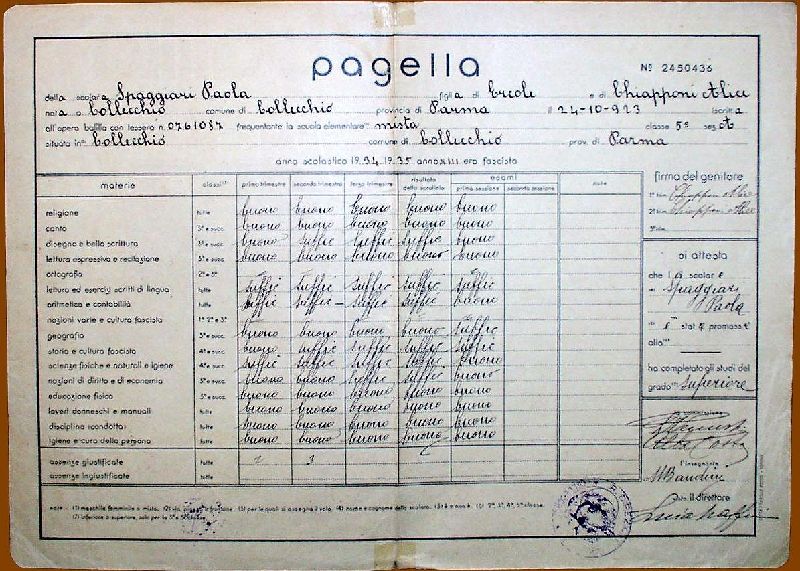 pagella
Nº 2450436
della scolara Spaggiari Paola figlia di Ercole e di Chiapponi Alice
nata a Collecchio comune di Collecchio provincia di Parma il 24-10-923 iscritta
all'opera balilla con tessera n. 0261087 frequentante la scuola elementare mista classe 5ª sez A
situata in Collecchio comune di Collecchio prov. di Parma
anno scolastico 1934-1935 anno XIII era fascista
materie classi primo trimestre secondo trimestre terzo trimestre risultato dello scrutinio esami note
prima sessione seconda sessione
religione tutte buono buono buono buono buono
canto 3ª e succ. buono buono buono buono buono
disegno e bella scrittura tutte buono suffic suffic suffic buono
lettura espressiva e recitazione 3ª e succ. buono buono buono buono buono
ortografia 2ª e 3ª
lettura ed esercizi scritti di lingua tutte suffic suffic suffic suffic suffic
aritmetica e contabilità tutte suffic suffic suffic suffic buono
nozioni varie e cultura fascista 1ª 2ª e 3ª
geografia 3ª e succ. buono buono buono buono suffic
storia e cultura fascista 4ª e succ. buono suffic suffic suffic suffic
scienze fisiche e naturali e igiene 4ª e succ. suffic suffic suffic suffic buono
nozioni di diritto e di economia 5ª e succ. buono buono suffic suffic buono
educazione fisica 3ª e succ. buono buono buono buono buono
lavori donneschi e manuali tutte buono buono buono buono buono
disciplina (condotta) tutte buono buono buono buono buono
igiene e cura della persona tutte buono buono buono buono buono
assenze giustificate tutte 2 3
assenze ingiustificate tutte
firma del genitore
1º trim. Chiapponi Alice
2º trim. Chiapponi Alice
3º trim.
si attesta
che la scolara
Spaggiari
Paola
è stata promossa
alla
ha completato gli studi del
grado superiore
l'insegnante
M Bandini
il direttore
note